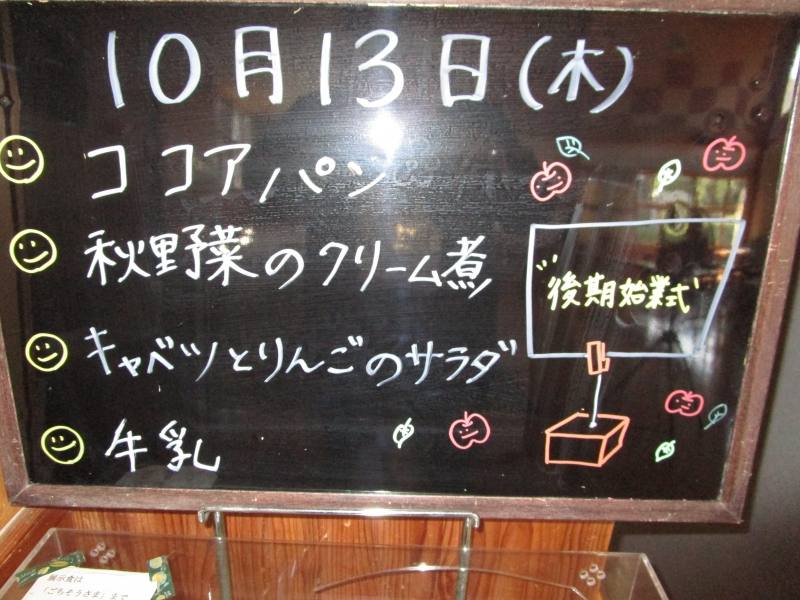 10月13日(木)
ココアパン
秋野菜のクリーム煮
キャベツとりんごのサラダ
牛乳
後期始業式
展示食は
「ごちそうさま」まで